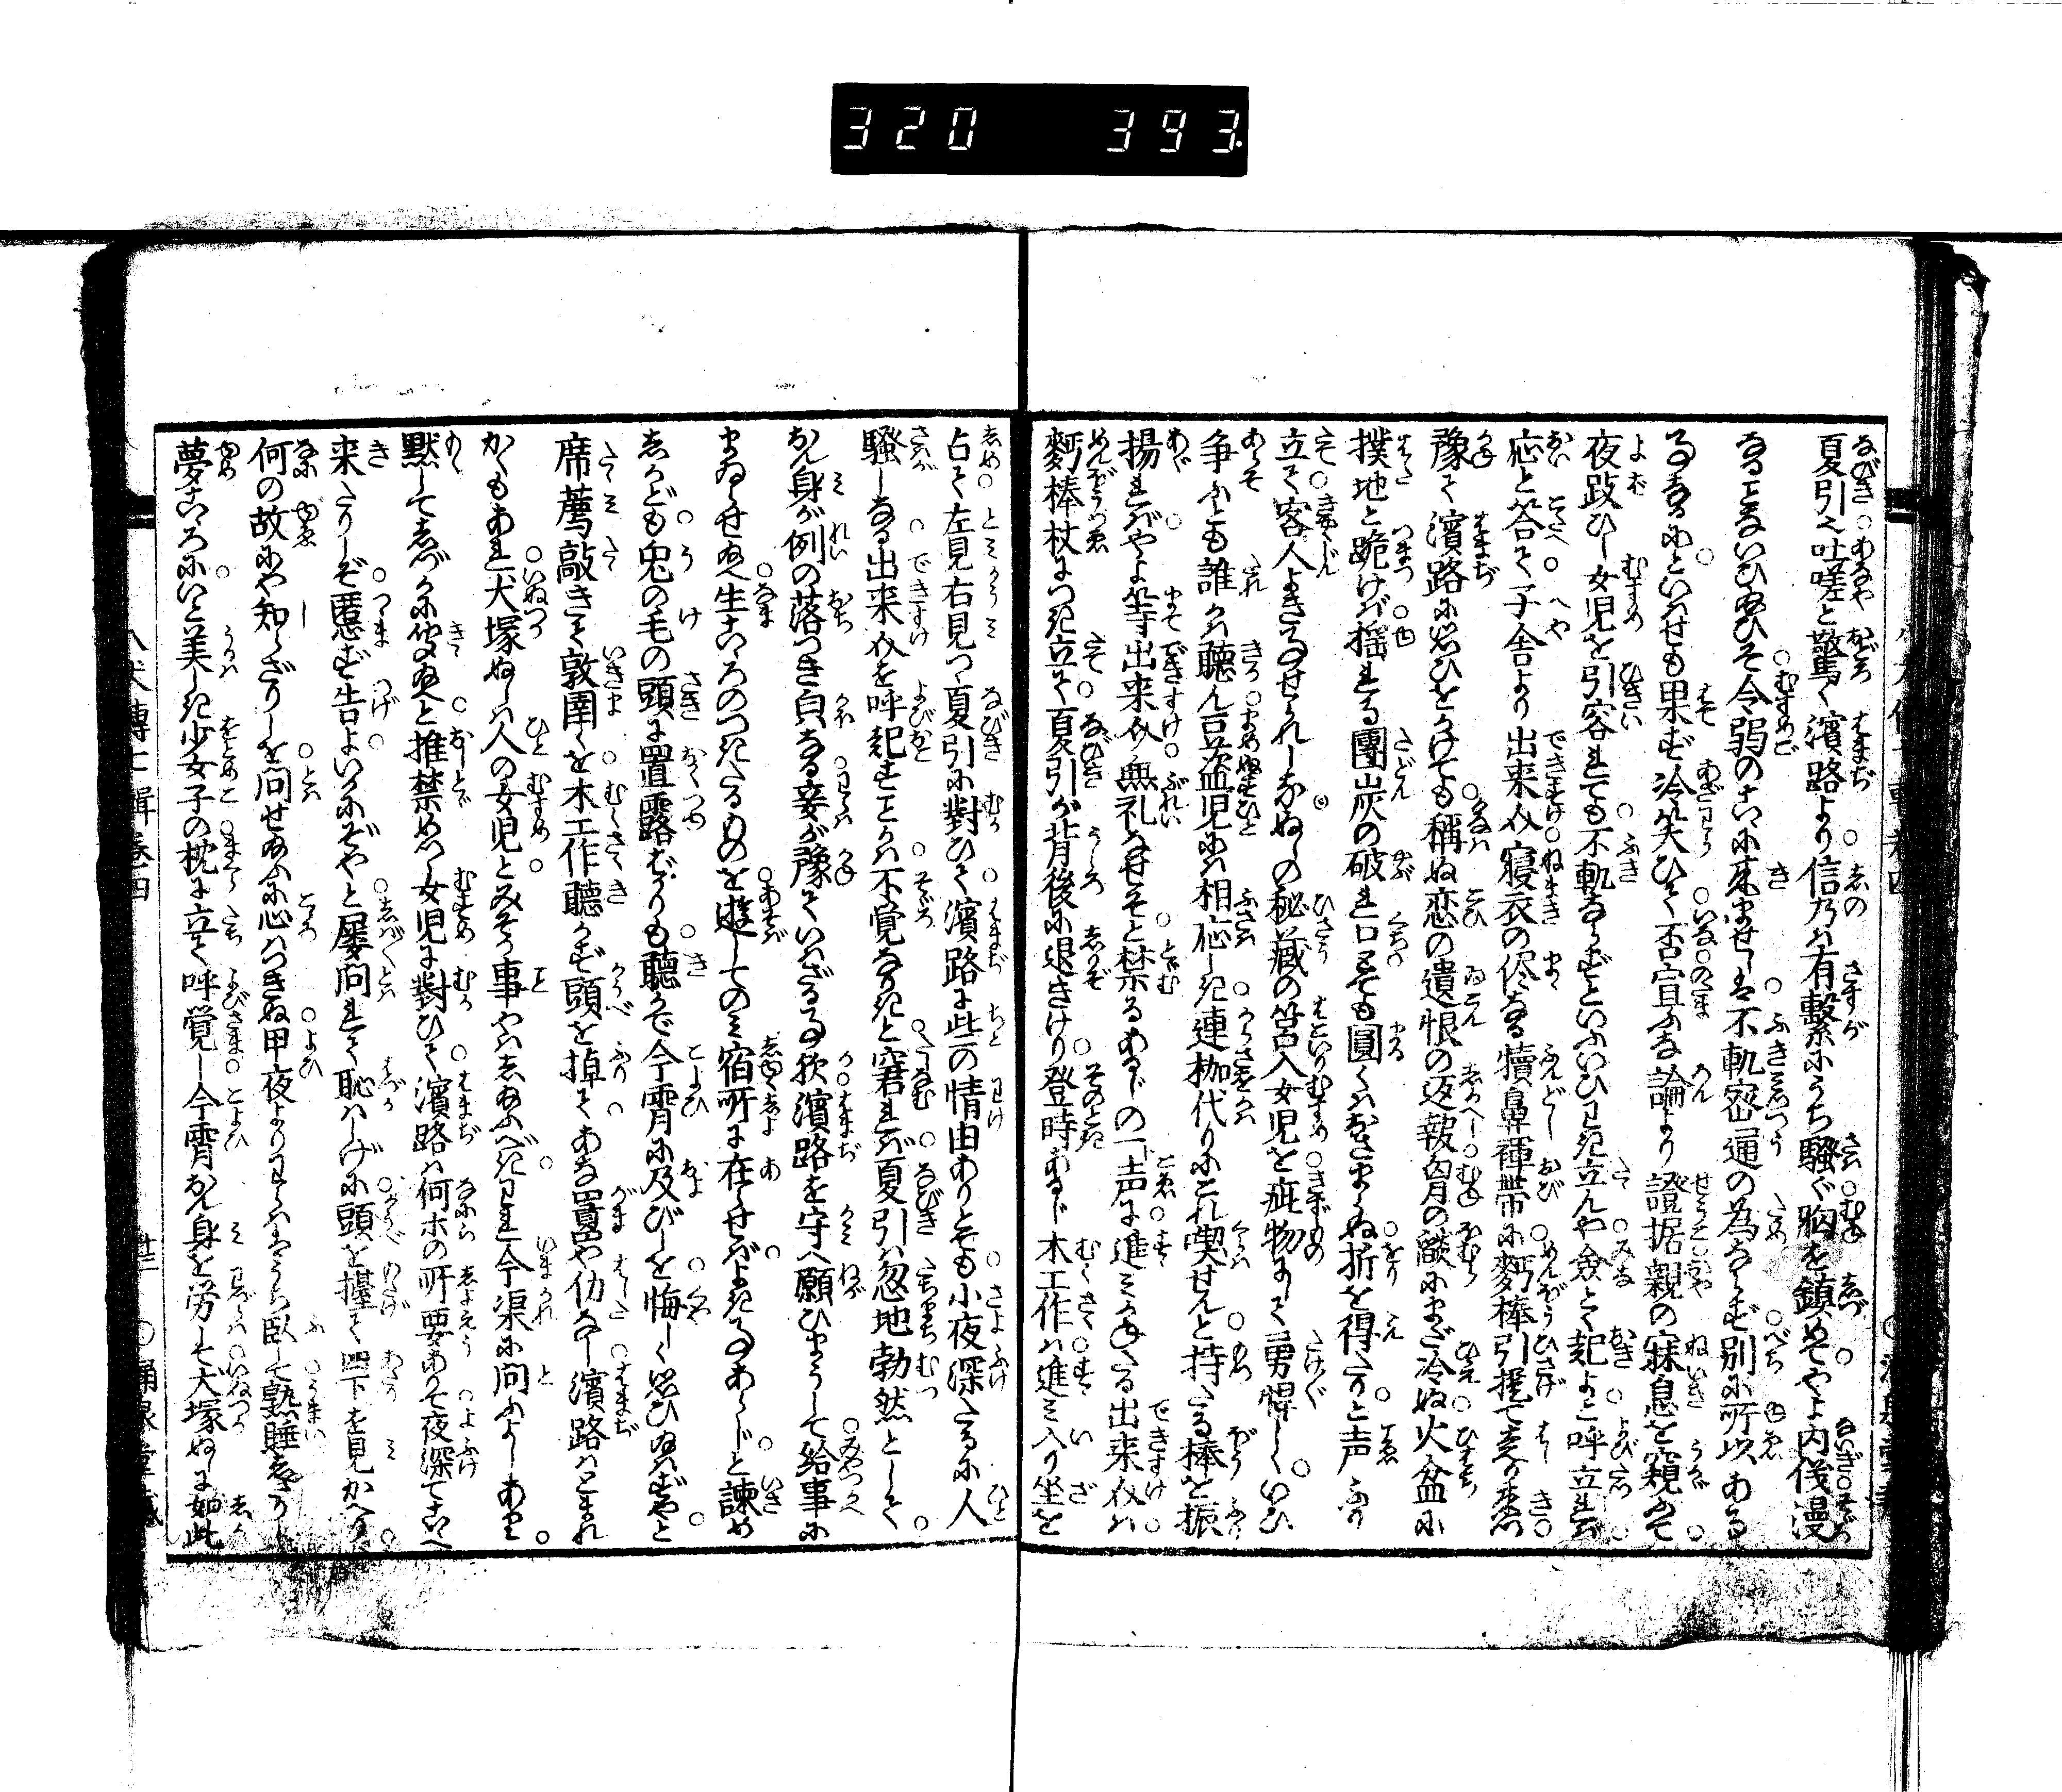 320 393.
夏引は吐嗟と驚く濱路より信乃は有繋にうち騒ぐ胸を鎮めてやよ内儀漫
なることないひ給ひそ令弱のこゝに来ませしは不軌密通の為ならず別に所以ある
事なるにといはせも果ず冷笑ひて否宣ふな論より證据親の寐息を窺ふて
夜跂ひし女児を引容れても不軌ならずといふいひわき立んや僉とく起よと呼立れば
応と答て子舎より出来介寝衣の侭なる犢鼻褌帯に麪棒引提て走り来つ
豫て濱路に思ひをかけても稱ぬ恋の遺恨の返報胸の燄にまだ冷ぬ火盆に
撲地と跪けば揺れる團炭の破れ口までも圓くはをさまらぬ折を得たりと声ふり
立て客人よき事せられしなぬしの秘蔵の筥入女児を疵物にして勇悍しくいひ
争ふとも誰かは聴ん豆盗児には相応しき連枷代りにこれ喫せんと持たる棒を振
揚ればやよ等出来介無礼なせそと禁るあるじの一声に進みかねたる出来介は
麪棒杖につき立て夏引が背後に退きけり登時あるじ木工作は進み入り坐を
占て左見右見つ夏引に對ひて濱路に些の情由ありとも小夜深たるに人
騒しなる出来介を呼起すことかは不覚なりきと窘れば夏引は忽地勃然として
おん身が例の落つき皃なる妾が豫ていはざる事歟濱路を守へ願ひまうして給事に
まゐらせ給へ生こゝろのつきたるものを遊してのみ宿所に在らせばよき事あらじと諫め
しかども兎の毛の頭に置露ばかりも聴かで今宵に及びしを悔しく思ひ給はずやと
席薦敲きて敦圉くを木工作聴かず頭を掉てあな囂や仂なし濱路はとまれ
かくもあれ犬塚ぬしは人の女児とみそか事やはし給ふべきわれ今渠に問ふよしあり
黙してしづかに彼給へと推禁めつゝ女児に對ひて濱路は何ホの所要ありて夜深てこゝへ
来たりしぞ匿まず告よいかにぞやと屡問れて恥かしげに頭を擡て四下を見かへり
何の故にや知らざりしを問せ給ふに心はつきぬ甲夜よりわらははうち臥して熟睡しさりし
夢こゝろにいと美しき少女子の枕に立て呼覚し今宵おん身を労して犬塚ぬしに如此
八犬傳七輯巻四